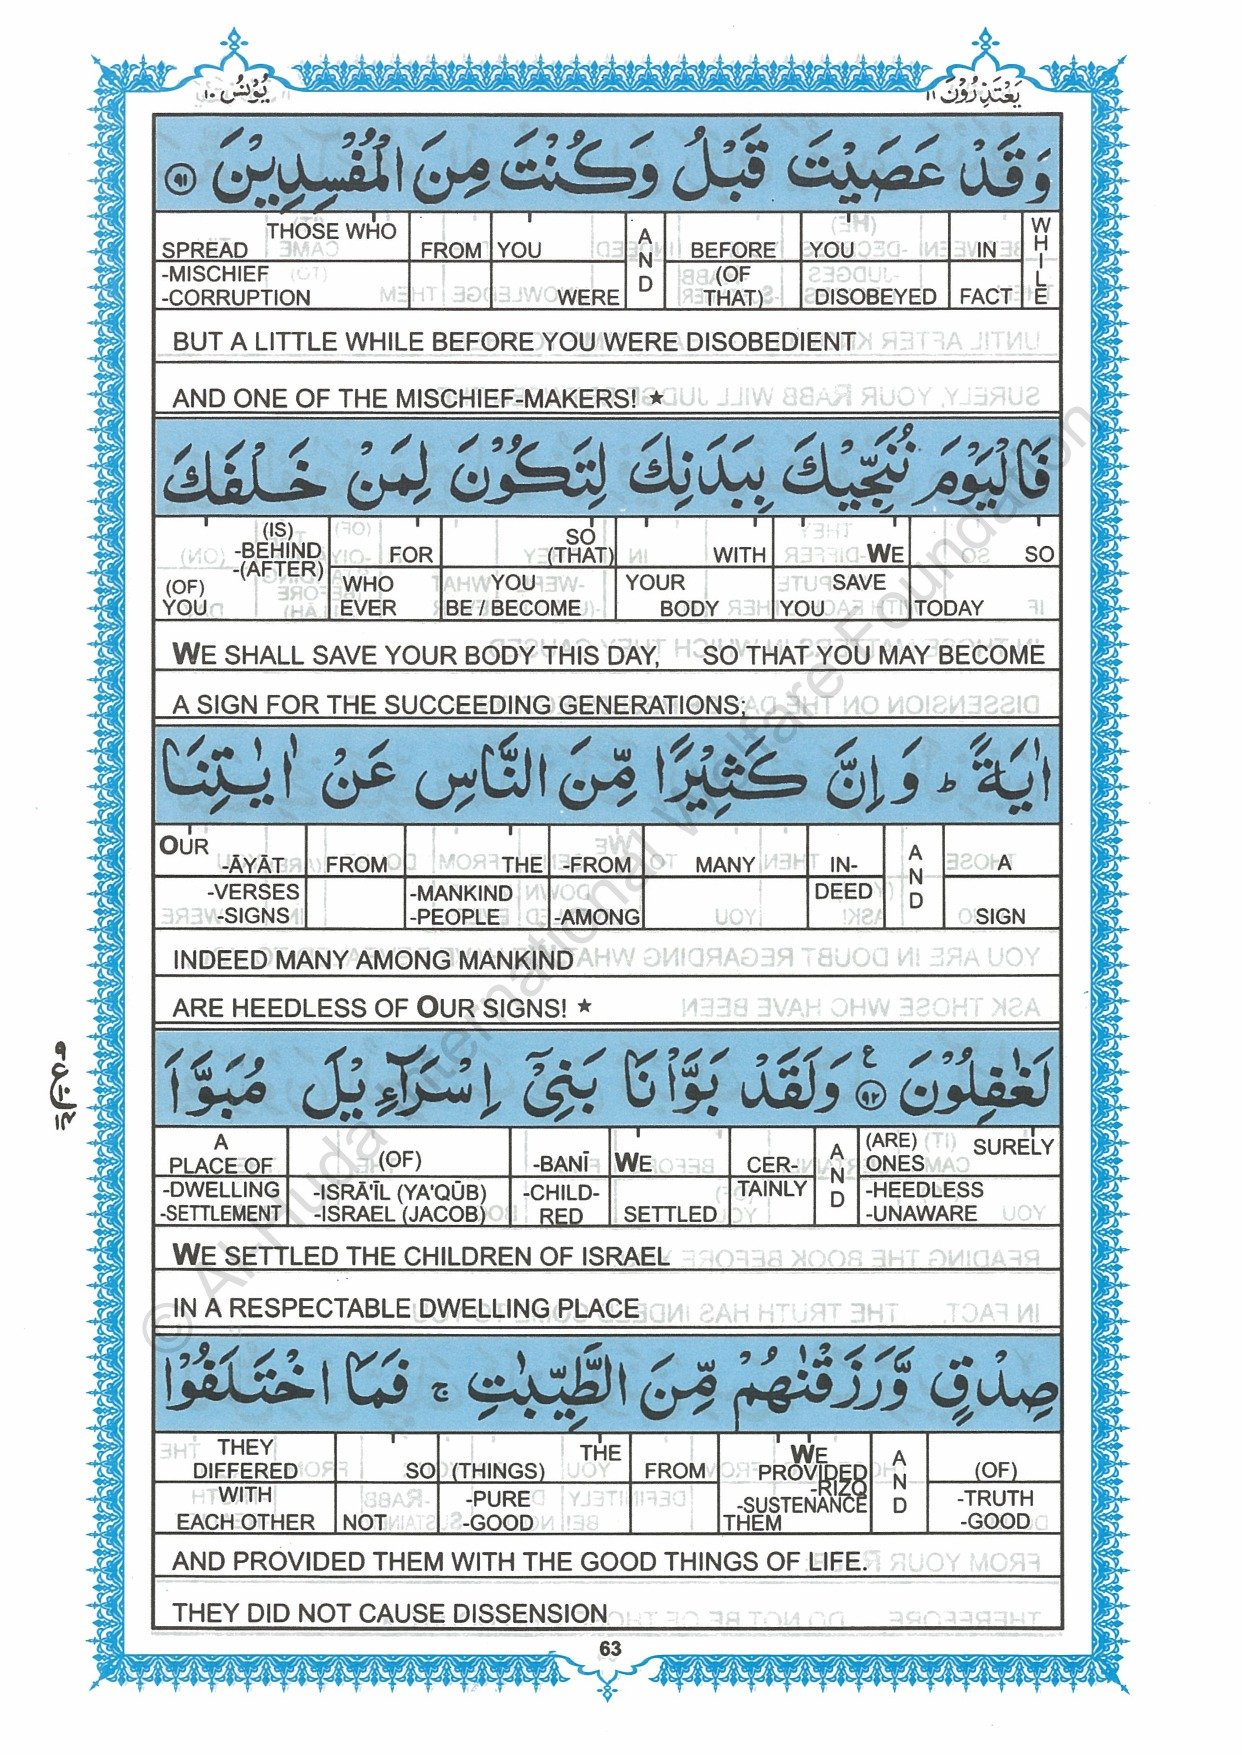 یُوْنُسُ ١٠
یَعْتَذِرُوْنَ ١١
وَقَدْ عَصَیْتَ قَبْلُ وَکُنْتَ مِنَ الْمُفْسِدِیْنَ ۝٩١
THOSE WHO SPREAD -MISCHIEF -CORRUPTION
FROM
YOU WERE
AND
BEFORE (OF THAT)
YOU DISOBEYED
IN FACT
WHILE
BUT A LITTLE WHILE BEFORE YOU WERE DISOBEDIENT
AND ONE OF THE MISCHIEF-MAKERS! ★
فَالْیَوْمَ نُنَجِّیْكَ بِبَدَنِكَ لِتَکُوْنَ لِمَنْ خَلْفَكَ
(IS) -BEHIND -(AFTER) (OF) YOU
FOR WHO EVER
SO (THAT) YOU BE / BECOME
WITH YOUR BODY
WE SAVE YOU
SO TODAY
WE SHALL SAVE YOUR BODY THIS DAY, SO THAT YOU MAY BECOME
A SIGN FOR THE SUCCEEDING GENERATIONS;
اٰیَةً ؕ وَاِنَّ کَثِیْرًا مِّنَ النَّاسِ عَنْ اٰیٰتِنَا
OUR -ĀYĀT -VERSES -SIGNS
FROM
THE -MANKIND -PEOPLE
-FROM -AMONG
MANY
IN-DEED
AND
A SIGN
INDEED MANY AMONG MANKIND
ARE HEEDLESS OF OUR SIGNS! ★
لَغٰفِلُوْنَ ۝٩٢ ع وَلَقَدْ بَوَّاْنَا بَنِیْٓ اِسْرَآءِیْلَ مُبَوَّاَ
A PLACE OF -DWELLING -SETTLEMENT
(OF) -ISRĀ'ĪL (YA'QŪB) -ISRAEL (JACOB)
-BANĪ -CHILD-RED
WE SETTLED
CER-TAINLY
AND
SURELY (ARE) ONES -HEEDLESS -UNAWARE
WE SETTLED THE CHILDREN OF ISRAEL
IN A RESPECTABLE DWELLING PLACE
صِدْقٍ وَّرَزَقْنٰهُمْ مِّنَ الطَّیِّبٰتِ ۚ فَمَا اخْتَلَفُوْا
THEY DIFFERED WITH EACH OTHER
SO NOT
THE (THINGS) -PURE -GOOD
FROM
WE PROVIDED -RIZQ -SUSTENANCE THEM
AND
(OF) -TRUTH -GOOD
AND PROVIDED THEM WITH THE GOOD THINGS OF LIFE.
THEY DID NOT CAUSE DISSENSION
63
© Al-Huda International Welfare Foundation